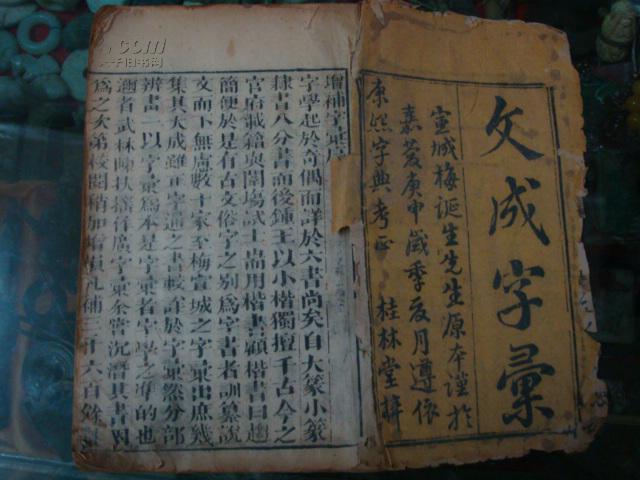 文成字彙
宣城梅誕生先生原本謹於
嘉慶庚申歲季夏月遵依
康熙字典考正
桂林堂梓
增補字彙序
字學起於奇偶而詳於六書尚矣自大篆小篆
隸書八分書而後鍾王以小楷獨擅千古今之
官府載籍與闈場試士咸用楷書顧楷書曰趨
簡便於是有古文俗字之別為字書者訓纂說
文而下無慮數十家至梅宣城之字彙出庶幾
集其大成雖正字通之書較詳於字彙然分部
辨書一以字彙為本是字彙者字學之準的也
者武林陳扶搖作廣字彙余嘗沉潛其書因
為之次第校閱稍加增損凡補三千六百餘
.com